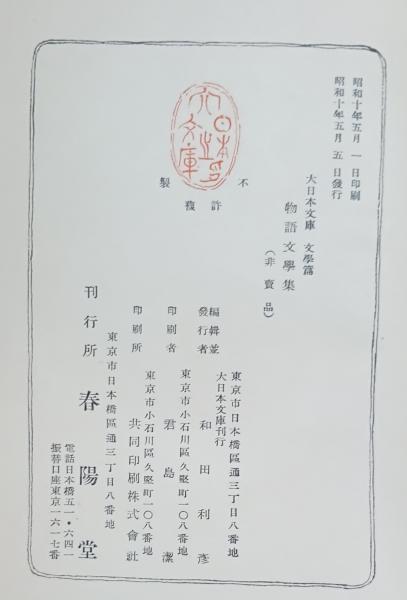 昭和十年五月一日印刷
昭和十年五月五日發行
大日本文庫 文學篇
物語文學集
(非賣品)
不許複製
大日本文庫
編輯並發行者
東京市日本橋區通三丁目八番地
大日本文庫刊行
和田利彥
印刷者
東京市小石川區久堅町一〇八番地
君島潔
印刷所
東京市小石川區久堅町一〇八番地
共同印刷株式會社
東京市日本橋區通三丁目八番地
刊行所 春陽堂
電話日本橋五一・六四一
振替口座東京一六一七番